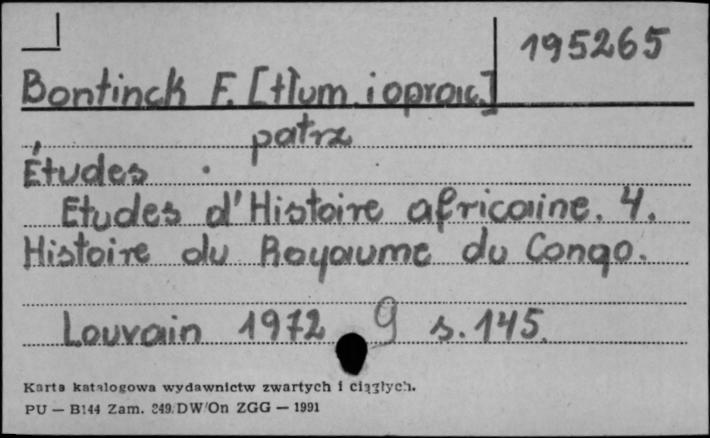 195265
Bontinck F. [tłum. i oprac.]
patrz
Études
Etudes d'Histoire africaine. 4.
Histoire du Royaume du Congo.
Louvain 1972 9 s. 145.
Karta katalogowa wydawnictw zwartych i ciągłych.
PU — B144 Zam. 849/DW/On ZGG — 1991